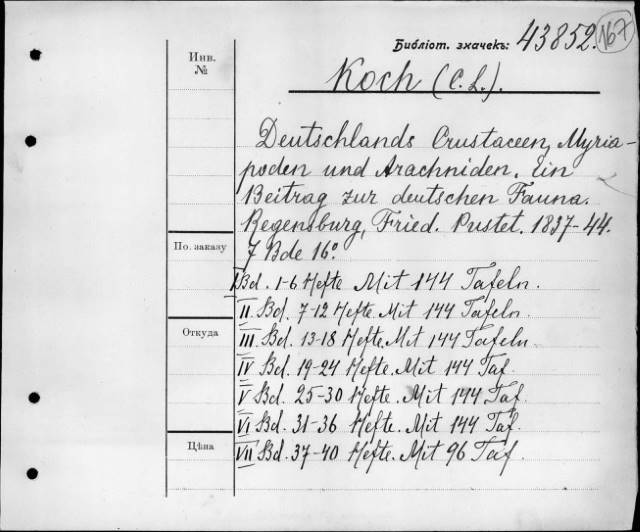 Библіот. значекъ: 43852. 167
Инв. №
Koch (C. L.).
Deutschlands Crustaceen, Myria-
poden und Arachniden. Ein
Beitrag zur deutschen Fauna.
Regensburg, Fried. Pustet. 1837-44.
По. заказу
7 Bde 16°.
I Bd. 1-6 Hefte Mit 144 Tafeln.
II Bd. 7-12 Hefte. Mit 144 Tafeln.
Откуда
III Bd. 13-18 Hefte. Mit 144 Tafeln.
IV Bd. 19-24 Hefte. Mit 144 Taf.
V Bd. 25-30 Hefte. Mit 144 Taf.
VI Bd. 31-36 Hefte. Mit 144 Taf.
Цѣна
VII Bd. 37-40 Hefte. Mit 96 Taf.